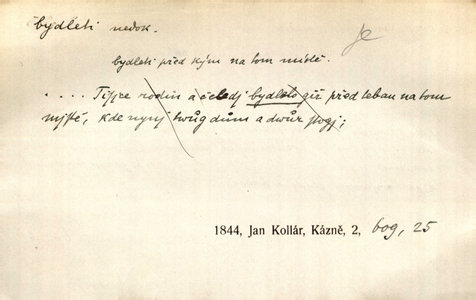 bydleti nedok.
je
bydleti před kým na tom místě.
.... Tisjce rodin a čeledj bydlelo giž před tebau na tom
mjstě, kde nynj twůg dům a dwůr stogj;
1844, Jan Kollár, Kázně, 2, bog, 25